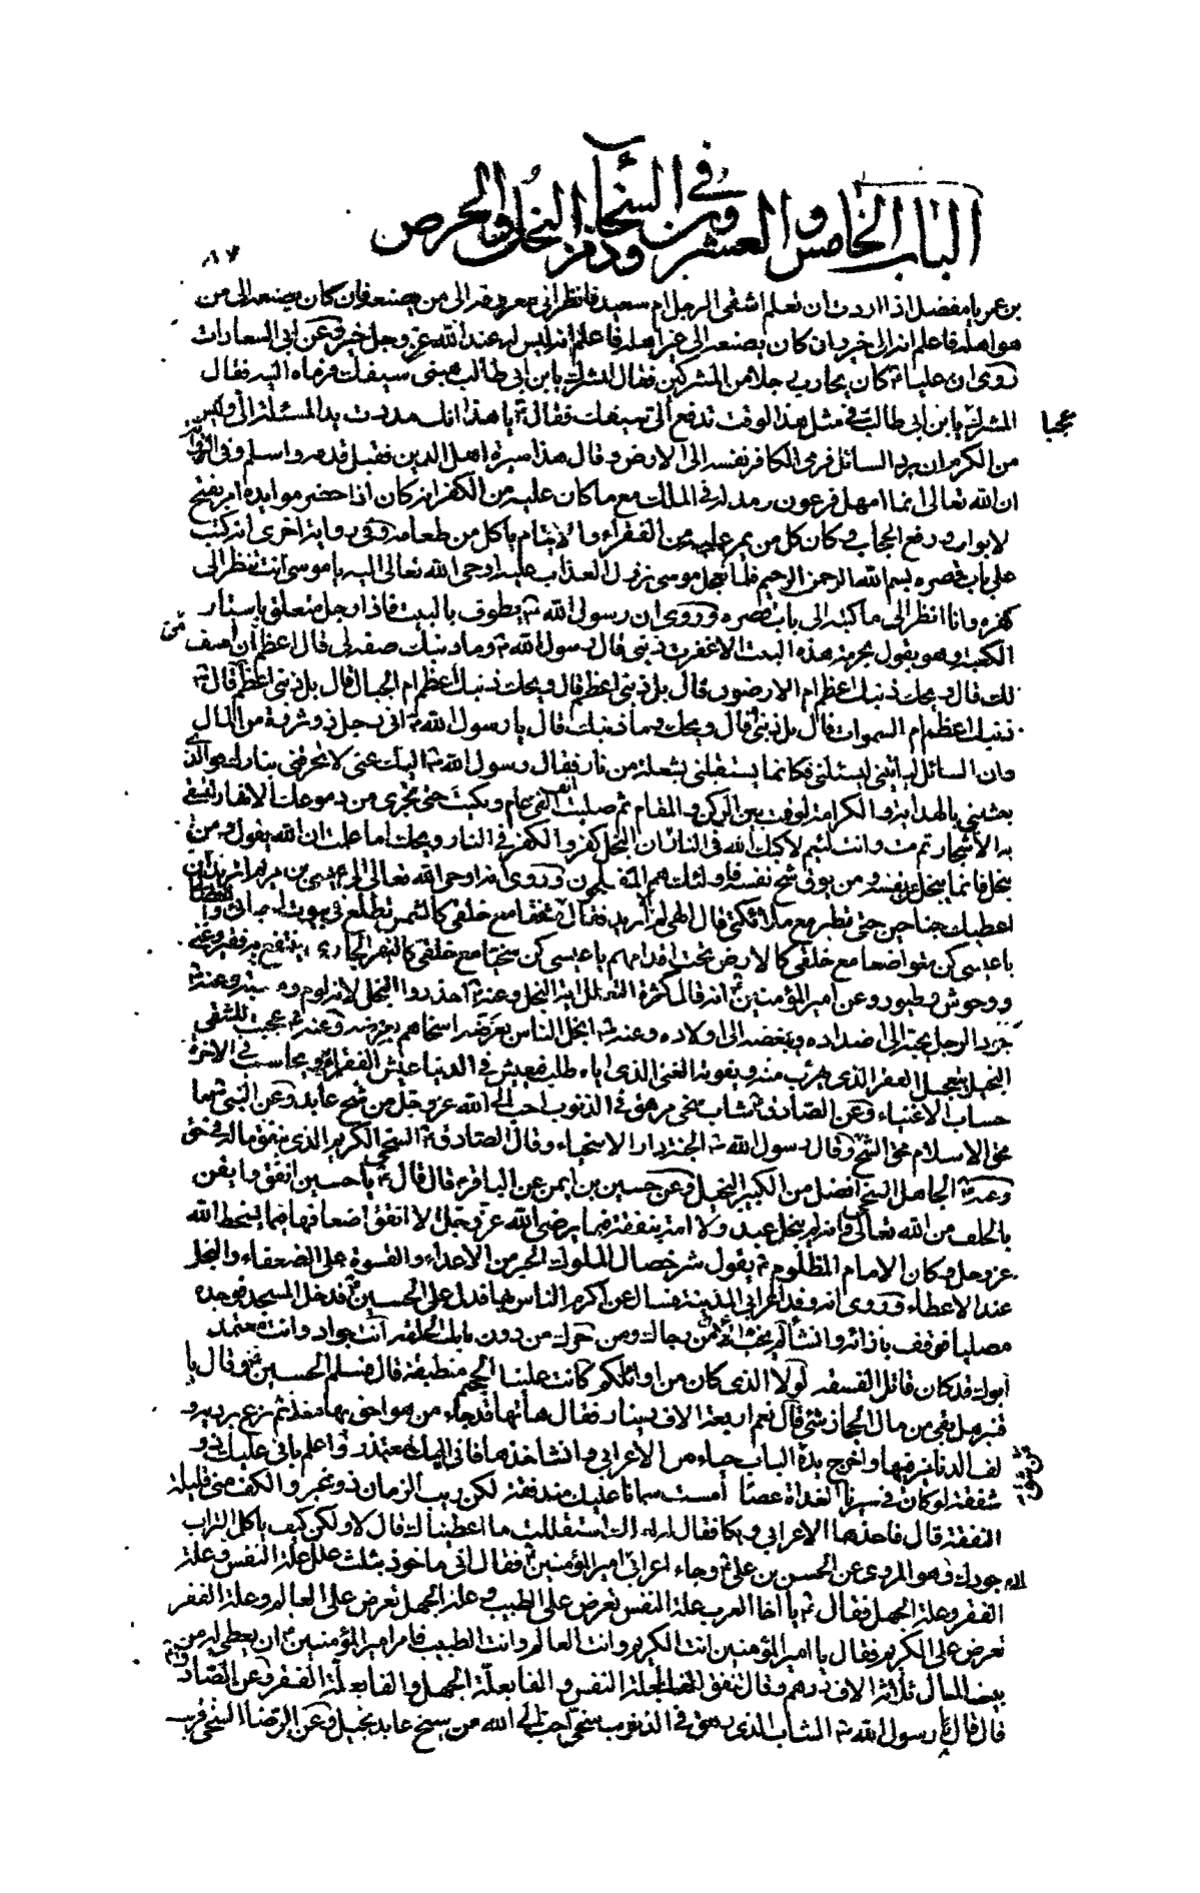 الباب الخامس والعشرون في السخاء وذم البخل والحرص
٨٧
بن عمر يا مفضل اذا اردت ان تعلم اشقى الرجل ام سعيد فانظر الى معروفه الى من يصنعه فان كان يصنعه الى من
هو اهله فاعلم انه الى خير وان كان يصنعه الى غير اهله فاعلم انه ليس له عند الله عز وجل خير وعن ابي السعادات
روى ان عليا ع كان يحارب رجلا من المشركين فقال المشرك يا بن ابي طالب هبني سيفك فرماه اليه فقال
عجبا
المشرك يا بن ابي طالب في مثل هذا الوقت تدفع الي سيفك فقال ع يا هذا انك مددت يد المسئلة الي وليس
من الكرم ان يرد السائل فرمى الكافر نفسه الى الارض وقال هذا سيرة اهل الدين فقبل قدمه واسلم وفي
ان الله تعالى انما امهل فرعون في الملك مع ما كان عليه من الكفر انه كان اذا حضر موايده امر بفتح
لابواب ورفع الحجاب وكان كل من يمر عليه من الفقراء والايتام ياكل من طعامه وفي رواية اخرى انه كتب
على باب قصره بسم الله الرحمن الرحيم فلما عجل موسى نزول العذاب عليه اوحى الله تعالى اليه يا موسى انت تنظر الى
كفره وانا انظر الى ما كتبه الى باب قصره وروى ان رسول الله ص يطوف بالبيت فاذا رجل متعلق باستار
الكعبة وهو يقول بحرمة هذه البيت الا غفرت ذنبي قال رسول الله ص وما ذنبك صفه لي قال اعظم ان اصف
لك قال ويحك ذنبك اعظم ام الارضون قال بل ذنبي اعظم قال ويحك ذنبك اعظم ام الجبال قال بل ذنبي اعظم قال ص
ذنبك اعظم ام السموات قال بل ذنبي قال ويحك وما ذنبك قال يا رسول الله ص اني رجل ذو ثروة من المال
وان السائل لياتيني ليسئلني فكانما يستقبلني بشعلة من نار فقال رسول الله ص اليك عني لا تحرقني بنارك فوالذي
بعثني بالهداية والكرامة لو قمت بين الركن والمقام ثم صليت الفي عام وبكيت حتى تجري من دموعك الانهار وتسقي
به الاشجار ثم مت وانت لئيم لاكبك الله في النار ان البخل كفر والكفر في النار ويحك اما علمت ان الله يقول ومن
يبخل فانما يبخل عن نفسه ومن يوق شح نفسه فاولئك هم المفلحون وروى انه اوحى الله تعالى الى عيسى بن مريم
اعطيك جناحين حتى تطير مع ملائكتي قال الهي اريد فقال مع خلقي كالشمس تطلع في بيوت
يا عيسى كن متواضعا مع خلقي كالارض تحت اقدامهم يا عيسى كن سخيا مع خلقي كالنهر الجاري ينتفع به فقير وغني
ووحوش وطيور وعن امير المؤمنين ع انه قال كثرة التعلل اية البخل وعنه ع احذروا البخل فانه لوم
جود الرجل يحببه الى اضداده وبخله يبغضه الى اولاده وعنه ع ابخل الناس بعرضه اسخاهم بعرضه وعنه ع عجبت للشقي
البخيل يتعجل الفقر الذي هرب منه ويفوته الغنى الذي اياه طلب فيعيش في الدنيا عيش الفقراء ويحاسب في الاخرة
حساب الاغنياء وعن الصادق ع شاب سخي مرهق في الذنوب احب الى الله عز وجل من شيخ عابد وعن النبي ص ما
محق الاسلام محق الشح وقال رسول الله ص الجنة دار الاسخياء وقال الصادق ع السخي الكريم الذي ينفق ماله في حق
وعنه ع الجاهل السخي افضل من الكبير البخيل وعن حسين بن ايمن عن الباقر ع قال قال يا حسين انفق وايقن
بالخلف من الله تعالى فانه لم يبخل عبد ولا امة بنفقة فيما يرضى الله عز وجل الا انفق اضعافها فيما يسخط الله
عز وجل وكان الامام المظلوم ع يقول شر خصال الملوك الجبن من الاعداء والقسوة على الضعفاء والبخل
عند الاعطاء وروى انه وفد اعرابي المدينة فسال عن اكرم الناس بها فدل على الحسين ع فدخل المسجد فوجده
مصليا فوقف بازائه وانشأ لم يخب الان من رجاك ومن حرك من دون بابك الحلقه انت جواد وانت معتمد
ابوك قد كان قاتل الفسقه لولا الذي كان من اوائلكم كانت علينا الجحيم منطبقة قال فسلم الحسين ع وقال يا
قنبر هل بقي من مال الحجاز شئ قال نعم اربعة الاف دينار فقال هاتها قد جاء من هو احق بها منا ثم نزع برديه
لف الدنانير فيها واخرج يده من الباب حياء من الاعرابي وانشا خذها فاني اليك معتذر واعلم باني عليك ذو
شفقة لو كان في سيرنا الغداة عصا امست سمانا عليك مندفقة لكن ريب الزمان ذو غير والكف مني قليلة
النفقة قال فاخذها الاعرابي وبكا فقال له لعلك استقللت ما اعطيناك قال لا ولكن كيف ياكل التراب
جودك وهو المروى عن الحسن بن علي ع وجاء اعرابي امير المؤمنين ع فقال اني ماخوذ بثلث علل علة النفس وعلة
الفقر وعلة الجهل فقال ع يا اخا العرب علة النفس تعرض على الطبيب وعلة الجهل تعرض على العالم وعلة الفقر
تعرض على الكريم فقال يا امير المؤمنين انت الكريم وانت العالم وانت الطبيب فامر امير المؤمنين ع ان يعطى له من
بيت المال ثلاثة الاف درهم وقال تنفق الفا بعلة النفس والفا بعلة الجهل والفا بعلة الفقر وعن الصادق
قال قال رسول الله ص الشاب الذي رهق في الذنوب سخي احب الى الله من شيخ عابد بخيل وعن الرضا ع السخي قريب